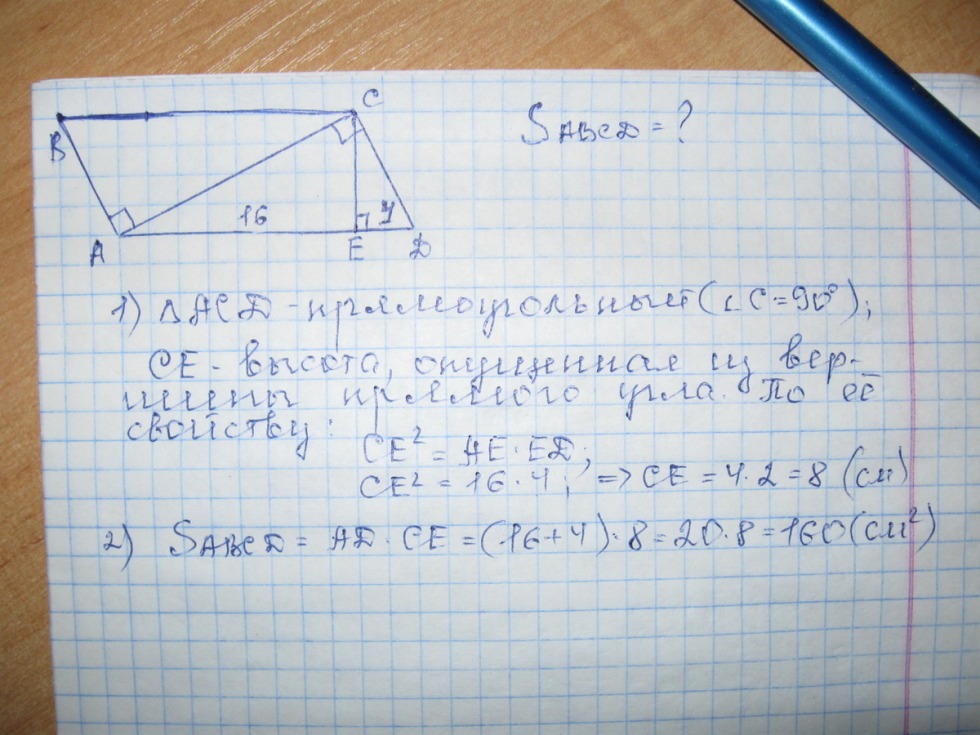 B
C
S ABCD = ?
16
4
A
E
D
1) △ACD - прямоугольный (∠C = 90°);
CE - высота, опущенная из вер-
шины прямого угла. По её
свойству:
CE² = AE · ED;
CE² = 16 · 4; => CE = 4 · 2 = 8 (см)
2) S ABCD = AD · CE = (16+4) · 8 = 20 · 8 = 160 (см²)